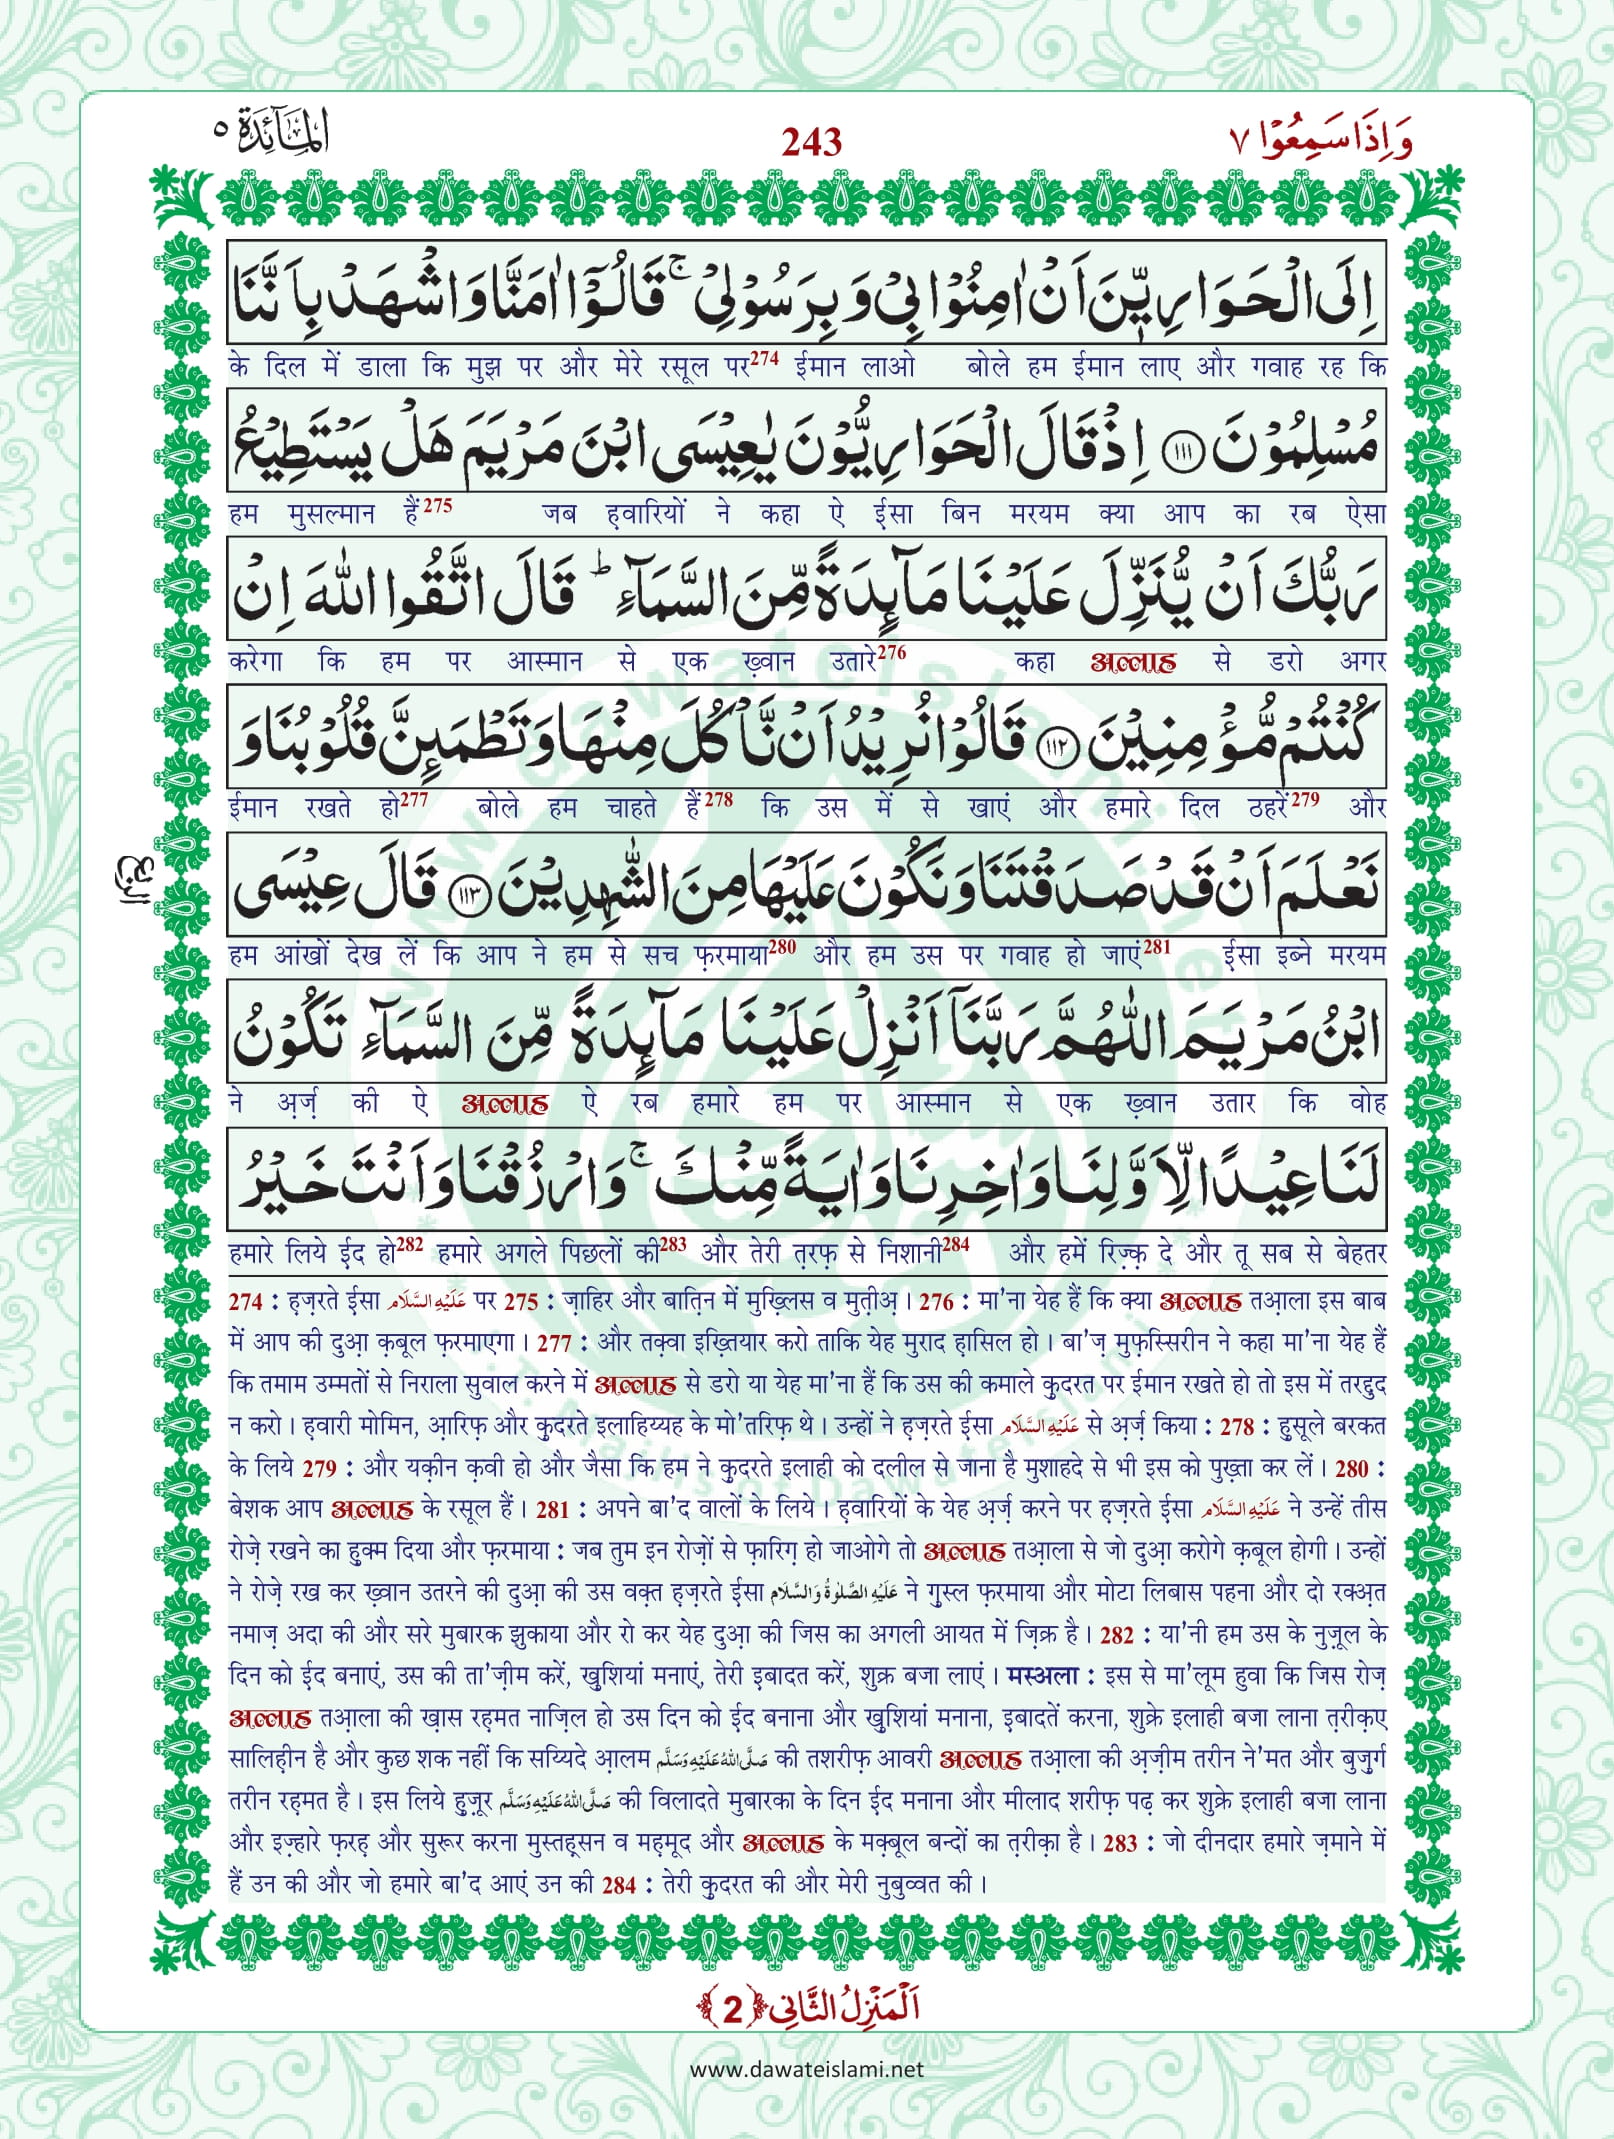 المآئدة ٥
243
وَاِذَا سَمِعُوْا ٧
اِلَى الْحَوَارِيّٖنَ اَنْ اٰمِنُوْا بِیْ وَ بِرَسُوْلِیْ ۚ قَالُوْۤا اٰمَنَّا وَ اشْهَدْ بِاَنَّنَا
के दिल में डाला कि मुझ पर और मेरे रसूल पर274 ईमान लाओ बोले हम ईमान लाए और गवाह रह कि
مُسْلِمُوْنَ ﴿١١١﴾ اِذْ قَالَ الْحَوَارِيُّوْنَ يٰعِيْسَى ابْنَ مَرْيَمَ هَلْ يَسْتَطِيْعُ
हम मुसल्मान हैं275 जब हवारियों ने कहा ऐ ईसा बिन मरयम क्या आप का रब ऐसा
رَبُّكَ اَنْ يُّنَزِّلَ عَلَيْنَا مَآىِٕدَةً مِّنَ السَّمَآءِ ؕ قَالَ اتَّقُوا اللّٰهَ اِنْ
करेगा कि हम पर आस्मान से एक ख़्वान उतारे276 कहा अल्लाह से डरो अगर
كُنْتُمْ مُّؤْمِنِيْنَ ﴿١١٢﴾ قَالُوْا نُرِيْدُ اَنْ نَّاْكُلَ مِنْهَا وَ تَطْمَىِٕنَّ قُلُوْبُنَا وَ
ईमान रखते हो277 बोले हम चाहते हैं278 कि उस में से खाएं और हमारे दिल ठहरें279 और
نَعْلَمَ اَنْ قَدْ صَدَقْتَنَا وَ نَكُوْنَ عَلَيْهَا مِنَ الشّٰهِدِيْنَ ﴿١١٣﴾ قَالَ عِيْسَى
الربع
हम आंखों देख लें कि आप ने हम से सच फ़रमाया280 और हम उस पर गवाह हो जाएं281 ईसा इब्ने मरयम
ابْنُ مَرْيَمَ اللّٰهُمَّ رَبَّنَاۤ اَنْزِلْ عَلَيْنَا مَآىِٕدَةً مِّنَ السَّمَآءِ تَكُوْنُ
ने अ़र्ज़ की ऐ अल्लाह ऐ रब हमारे हम पर आस्मान से एक ख़्वान उतार कि वोह
لَنَا عِيْدًا لِّاَوَّلِنَا وَ اٰخِرِنَا وَ اٰيَةً مِّنْكَ ۚ وَ ارْزُقْنَا وَ اَنْتَ خَيْرُ
हमारे लिये ईद हो282 हमारे अगले पिछलों की283 और तेरी त़रफ़ से निशानी284 और हमें रिज़्क़ दे और तू सब से बेहतर
274 : ह़ज़रते ईसा عَلَيْهِ السَّلَام पर 275 : ज़ाहिर और बात़िन में मुख़्लिस व मुत़ीअ़ । 276 : मा'ना येह हैं कि क्या अल्लाह तआ़ला इस बाब
में आप की दुआ़ क़बूल फ़रमाएगा । 277 : और तक़्वा इख़्तियार करो ताकि येह मुराद ह़ासिल हो । बा'ज़ मुफ़स्सिरीन ने कहा मा'ना येह हैं
कि तमाम उम्मतों से निराला सुवाल करने में अल्लाह से डरो या येह मा'ना हैं कि उस की कमाले क़ुदरत पर ईमान रखते हो तो इस में तरद्दुद
न करो । ह़वारी मोमिन, आ़रिफ़ और क़ुदरते इलाहिय्यह के मो'तरिफ़ थे । उन्हों ने ह़ज़रते ईसा عَلَيْهِ السَّلَام से अ़र्ज़ किया : 278 : हुसूले बरकत
के लिये 279 : और यक़ीन क़वी हो और जैसा कि हम ने क़ुदरते इलाही को दलील से जाना है मुशाहदे से भी इस को पुख़्ता कर लें । 280 :
बेशक आप अल्लाह के रसूल हैं । 281 : अपने बा'द वालों के लिये । ह़वारियों के येह अ़र्ज़ करने पर ह़ज़रते ईसा عَلَيْهِ السَّلَام ने उन्हें तीस
रोज़े रखने का हुक्म दिया और फ़रमाया : जब तुम इन रोज़ों से फ़ारिग़ हो जाओगे तो अल्लाह तआ़ला से जो दुआ़ करोगे क़बूल होगी । उन्हों
ने रोज़े रख कर ख़्वान उतरने की दुआ़ की उस वक़्त ह़ज़रते ईसा عَلَيْهِ الصَّلٰوةُ وَالسَّلَام ने ग़ुस्ल फ़रमाया और मोटा लिबास पहना और दो रक्अ़त
नमाज़ अदा की और सरे मुबारक झुकाया और रो कर येह दुआ़ की जिस का अगली आयत में ज़िक्र है । 282 : या'नी हम उस के नुज़ूल के
दिन को ईद बनाएं, उस की ता'ज़ीम करें, ख़ुशियां मनाएं, तेरी इबादत करें, शुक्र बजा लाएं । मस्अला : इस से मा'लूम हुवा कि जिस रोज़
अल्लाह तआ़ला की ख़ास रह़मत नाज़िल हो उस दिन को ईद बनाना और ख़ुशियां मनाना, इबादतें करना, शुक्रे इलाही बजा लाना त़रीक़ए
सालिह़ीन है और कुछ शक नहीं कि सय्यिदे आ़लम صَلَّى اللهُ عَلَيْهِ وَسَلَّم की तशरीफ़ आवरी अल्लाह तआ़ला की अ़ज़ीम तरीन ने'मत और बुज़ुर्ग
तरीन रह़मत है । इस लिये हुज़ूर صَلَّى اللهُ عَلَيْهِ وَسَلَّم की विलादते मुबारका के दिन ईद मनाना और मीलाद शरीफ़ पढ़ कर शुक्रे इलाही बजा लाना
और इज़्हारे फ़रह़ और सुरूर करना मुस्तह़सन व मह़मूद और अल्लाह के मक़्बूल बन्दों का त़रीक़ा है । 283 : जो दीनदार हमारे ज़माने में
हैं उन की और जो हमारे बा'द आएं उन की 284 : तेरी क़ुदरत की और मेरी नुबुव्वत की ।
اَلْمَنْزِلُ الثَّانِی ﴿2﴾
www.dawateislami.net